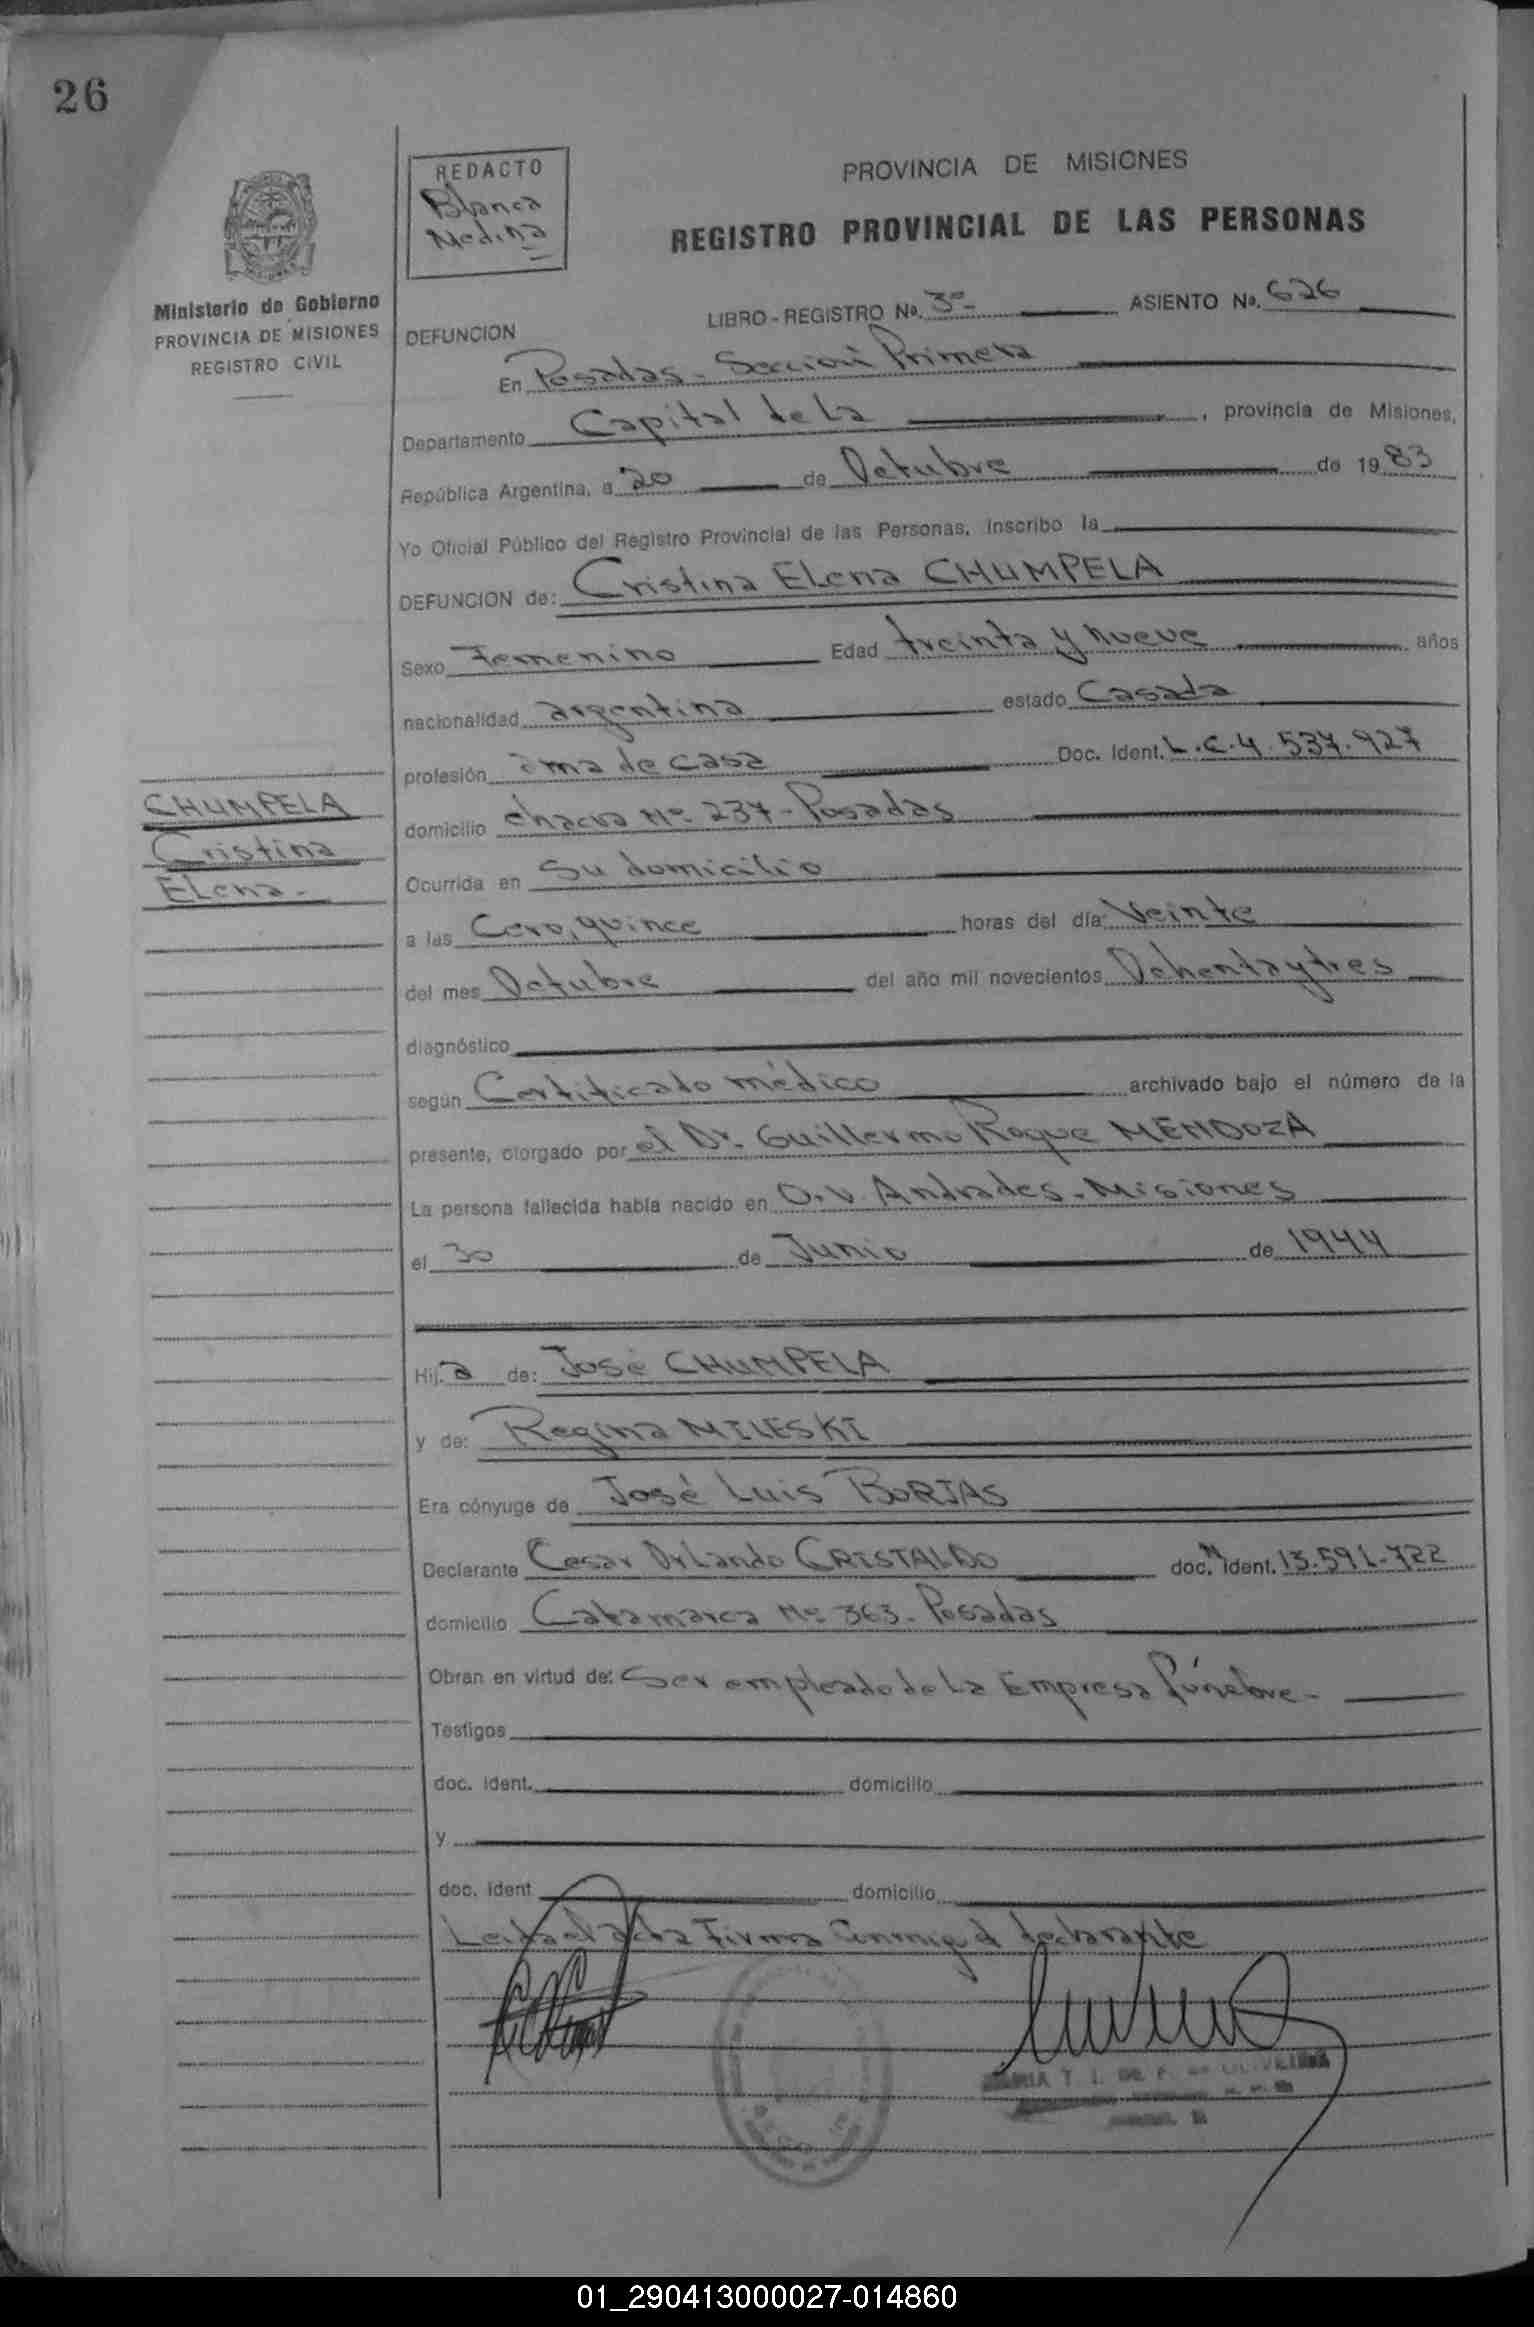 26
REDACTO
Blanca
Medina
Ministerio de Gobierno
PROVINCIA DE MISIONES
REGISTRO CIVIL
PROVINCIA DE MISIONES
REGISTRO PROVINCIAL DE LAS PERSONAS
LIBRO - REGISTRO Nº. 3º ASIENTO Nº. 626
DEFUNCION
En Posadas - Sección Primera
Departamento Capital de la , provincia de Misiones,
República Argentina, a 20 de Octubre de 1983
Yo Oficial Público del Registro Provincial de las Personas, inscribo la
DEFUNCION de: Cristina Elena CHUMPELA
Sexo Femenino Edad treinta y nueve años
nacionalidad argentina estado Casada
profesión ama de casa Doc. Ident. L.C. 4.537.927
domicilio chacra Nº 237 - Posadas
Ocurrida en Su domicilio
a las Cero, quince horas del día: Veinte
del mes Octubre del año mil novecientos Ochenta y tres
diagnóstico
según Certificado médico archivado bajo el número de la
presente, otorgado por el Dr. Guillermo Roque MENDOZA
La persona fallecida había nacido en O.V. Andrades - Misiones
el 30 de Junio de 1944
Hija de: José CHUMPELA
y de: Regina MILESKI
Era cónyuge de José Luis BORJAS
Declarante Cesar Orlando CRISTALDO doc. N ident. 13.591.722
domicilio Catamarca Nº 363 - Posadas
Obran en virtud de: Ser empleado de la Empresa fúnebre -
Testigos
doc. ident. domicilio
y
doc. ident domicilio
Leida el acta Firma Conmigo el declarante
CHUMPELA
Cristina
Elena -
01_290413000027-014860